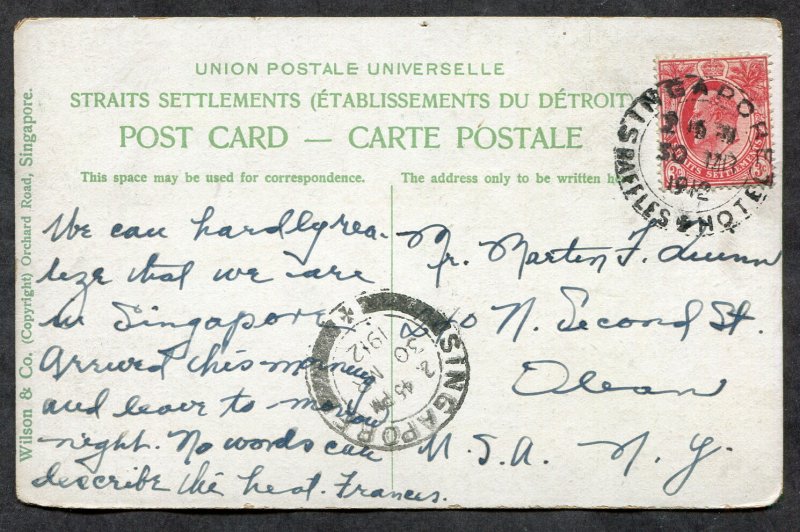 UNION POSTALE UNIVERSELLE
STRAITS SETTLEMENTS (ÉTABLISSEMENTS DU DÉTROIT)
POST CARD — CARTE POSTALE
This space may be used for correspondence.
The address only to be written
Wilson & Co. (Copyright) Orchard Road, Singapore.
We can hardly rea-
lize that we are
in Singapore
Arrived this morning
and leave to morrow
night. No words can
describe the heat. Frances.
Mr. Martin F. Quinn
N. Second St.
Olean
U.S.A. N.Y.
SINGAPORE
RAFFLES HOTEL
30
1912
STRAITS SETTLEMENTS
SINGAPORE
2 45 PM
30 MR
1912